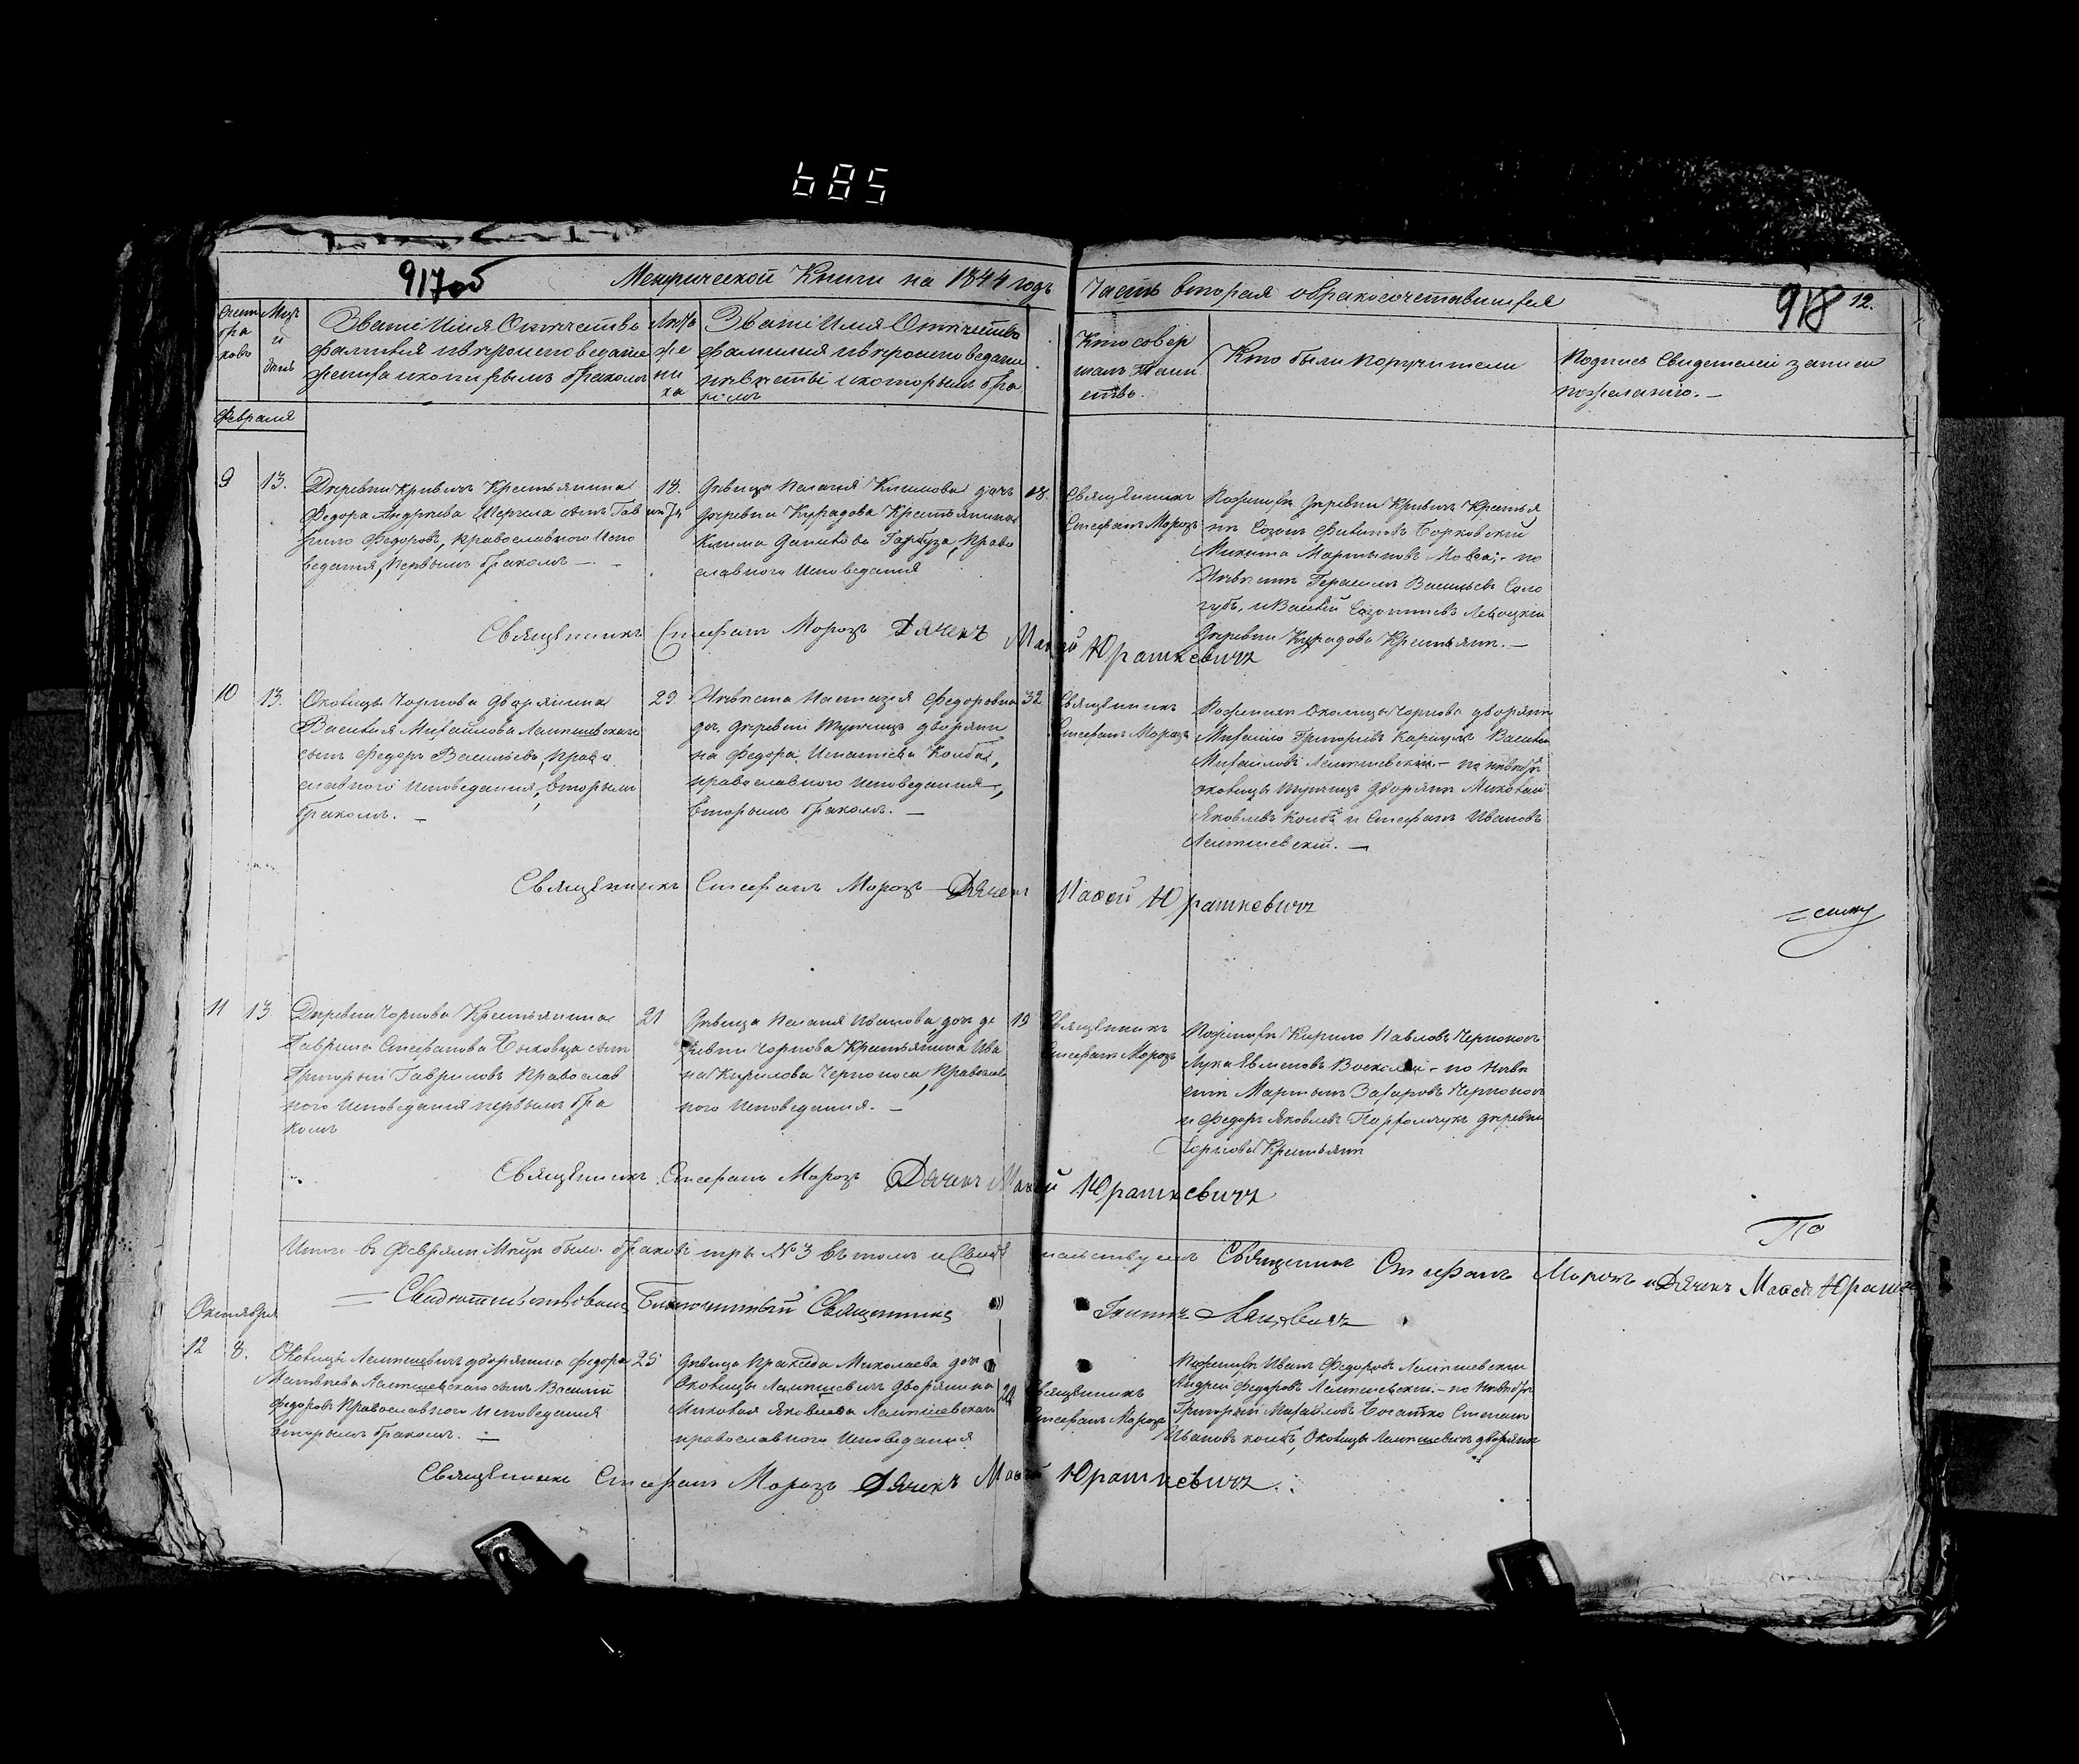 685
917об
Метрической Книги на 1844 годъ
Часть вторая о бракосочетавшихся
918 12.
Счет бра ковъ
Мцъ и день
Званіе Имя Отечество
фамилия и вѣроисповедание
жениха и которымъ бракомъ
Лѣта же ни ха
Званіе Имя Отечество
фамилия и вѣроисповедание
невѣсты и которымъ бра
комъ
Кто совер
шалъ Таин
ство.
Кто были поручители
Подпись Свидетелей записи
по желанію. —
Февраля
9 13.
Деревни Кривичъ Крестьянина
Федора Андреева сынъ Гав
рило Федоровъ, православного Испо
ведания, первымъ бракомъ —
18.
Девица Пелагия Климова дочь
деревни Курадова Крестьянина
Клима Данилова Гарбуза, Право
славного Исповедания
18.
Священникъ
Стефанъ Морозъ
Созонъ Филиповъ Борковский
Микита Мартыновъ — по
Невѣсте Герасимъ Васильевъ Соло
губъ, и Василий
Деревни Курадова Крестьяне. —
Священникъ Стефанъ Морозъ Дячекъ Мосей Юрашкевичъ
10 13.
Околицы Чорнова дворянина
Василия Михайлова Лемешевского
сынъ Федоръ Васильевъ, Право
славного исповедания, вторымъ
бракомъ. —
29.
Невѣста Настазия Федоровна
дворяни
на Федора Игнатіева Колба,
православного исповедания,
вторымъ бракомъ. —
32
Священникъ
Стефанъ Морозъ
По жениху Околицы Чорнова дворяне
Михайло Григорьевъ Василий
Михайловъ Лемешевский — по невѣсте
околицы дворяне Миколай
Яковлевъ Колбъ и Стефанъ Ивановъ
Лемешевский. —
Священникъ Стефанъ Морозъ Дячекъ Мосей Юрашкевичъ
11 13
Деревни Чорнова Крестьянина
Гаврила Стефанова сынъ
Григорый Гавриловъ Православ
ного исповедания первымъ бра
комъ
21
Девица Пелагия Иванова дочь де
ревни Чорнова Крестьянина Ива
на Кирилова Черноноса, Православ
ного Исповедания. —
19
Священникъ
Стефанъ Морозъ
По жениху Кирило Павловъ Черноносъ
Лука — по Невѣ
сте Мартынъ Захаровъ Черноносъ
и Федоръ Яковлевъ деревни
Чорнова Крестьяне
Священникъ Стефанъ Морозъ Дячекъ Мосей Юрашкевичъ
По
Итого въ Феврале Мцѣ было браковъ три №3 въ томъ и Свидетельствуемъ Священникъ Стефанъ Морозъ и Дячекъ Мосей Юрашк
Свидетельствовалъ Благочинный Священникъ
Октября
12 8.
Околицы Лемешевичъ дворянина Федора
Матвѣева Лемешевского сынъ Василий
Федоровъ Православного исповедания
вторымъ бракомъ. —
25
Девица Пракседа Миколаева дочь
Околицы Лемешевичъ дворянина
Миколая Яковлева Лемешевского
православного Исповедания
24
Священникъ
Стефанъ Морозъ
По жениху Иванъ Федоровъ Лемешевский
Андрей Федоровъ Лемешевский — по Невѣсте
Григорый Михайловъ Богатко Степанъ
Ивановъ Колбъ, Околицы Лемешевичъ дворяне
Священникъ Стефанъ Морозъ Дячекъ Мосей Юрашкевичъ.